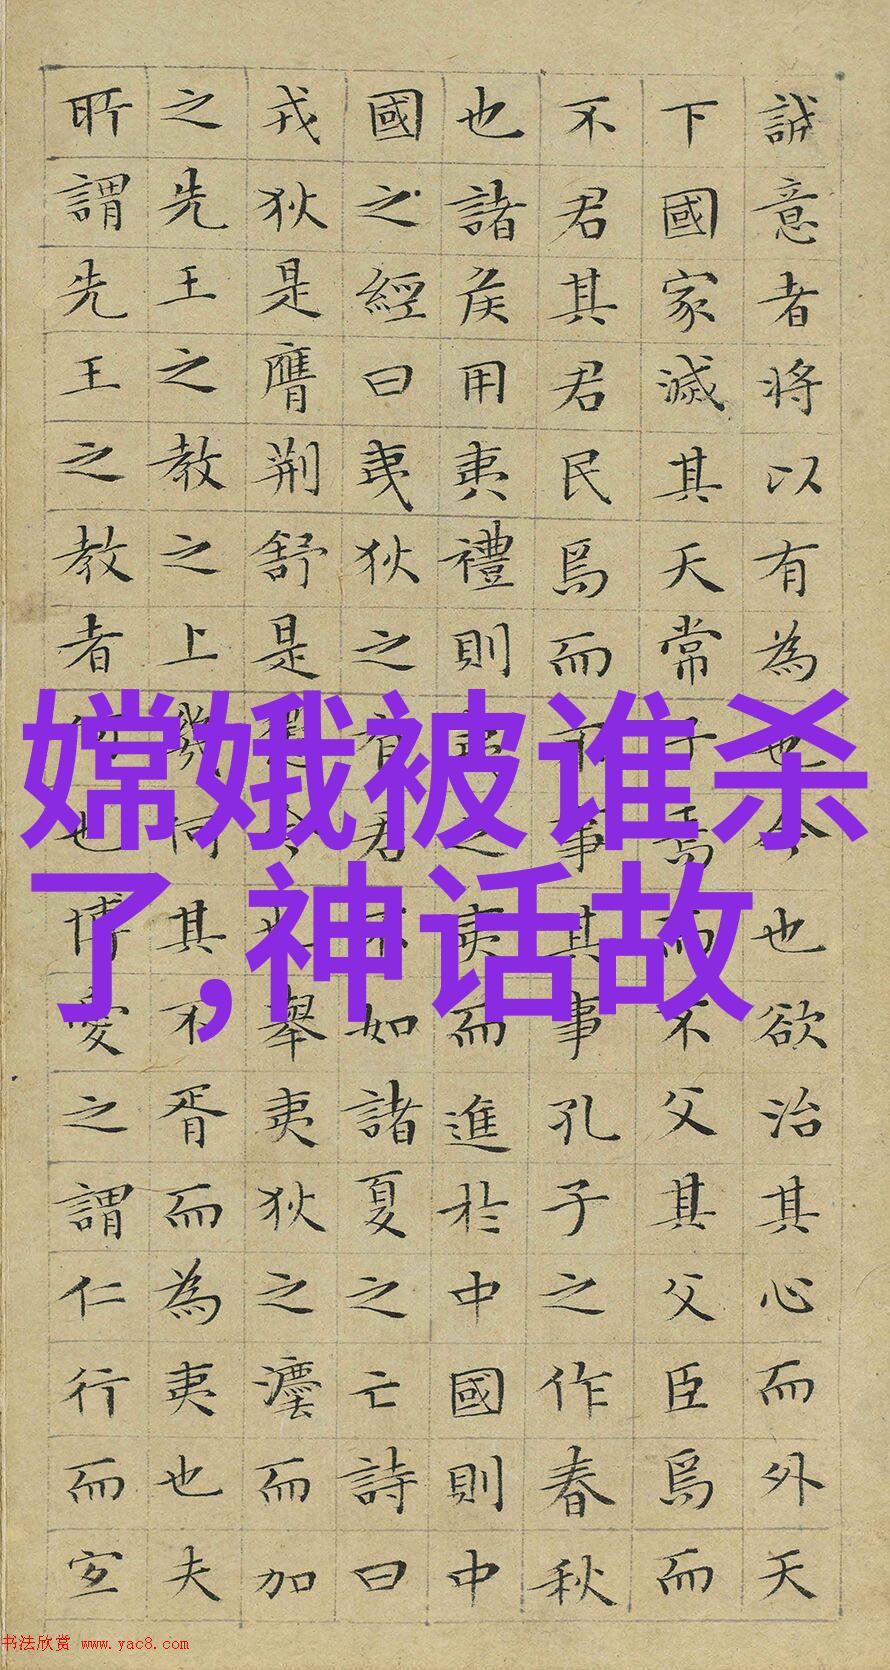 誠意者将以有為也今也欲治其心而外天
下國家滅其天常子焉而不父其父臣焉而
不君其君民焉而不事其事孔子之作春秋
也諸侯用夷禮則夷之夷而進於中國則中
國之經曰夷狄之有君不如諸夏之亡詩曰
戎狄是膺荆舒是懲今也舉夷狄之灋而加
之先王之教之上幾何其不胥而為夷也夫
所謂先王之教者何也博愛之謂仁行而宜
嫦娥被谁杀
了,神话故
书法欣赏 www.yac8.com